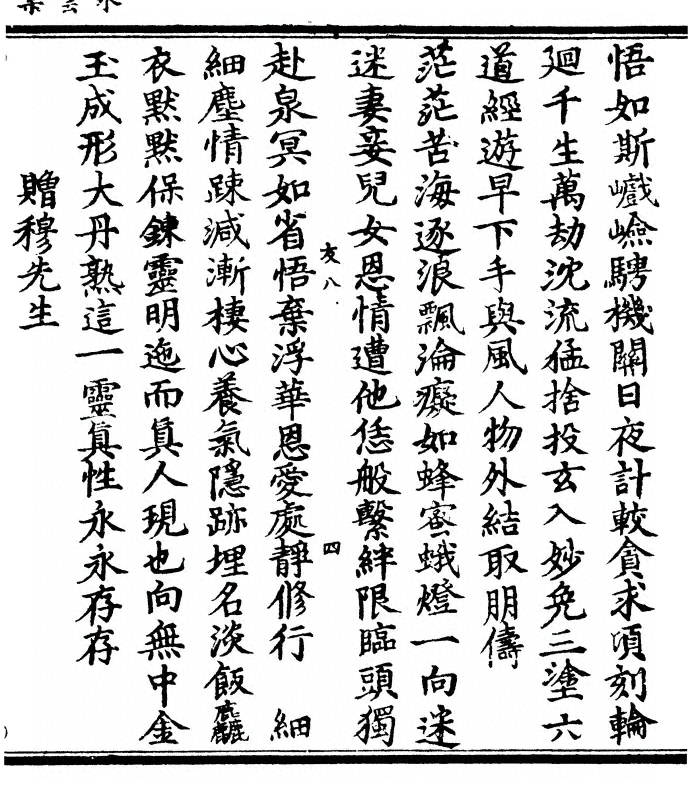 悟如斯巇嶮騁機關日夜計較貪求頃刻輪
廻千生萬劫沈流猛捨投玄入妙免三塗六
道經遊早下手與風人物外結取朋儔
茫茫苦海逐浪飄淪癡如蜂蜜蛾燈一向迷
迷妻妾兒女恩情遭他恁般繫絆限臨頭獨
亥八 四
赴泉冥如省悟棄浮華恩愛處靜修行 細
細塵情踈減漸棲心養氣隱跡埋名淡飯麤
衣默默保鍊靈明迤而真人現也向無中金
玉成形大丹熟這一靈真性永永存存
贈穆先生